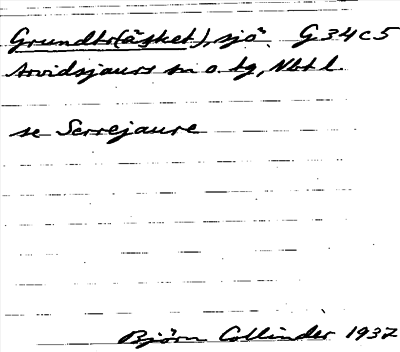 Grundtr(äsket), sjö. G34c5
Arvidsjaurs sn o. tg, Nbtl.
se Serrejaure
Björn Collinder 1937